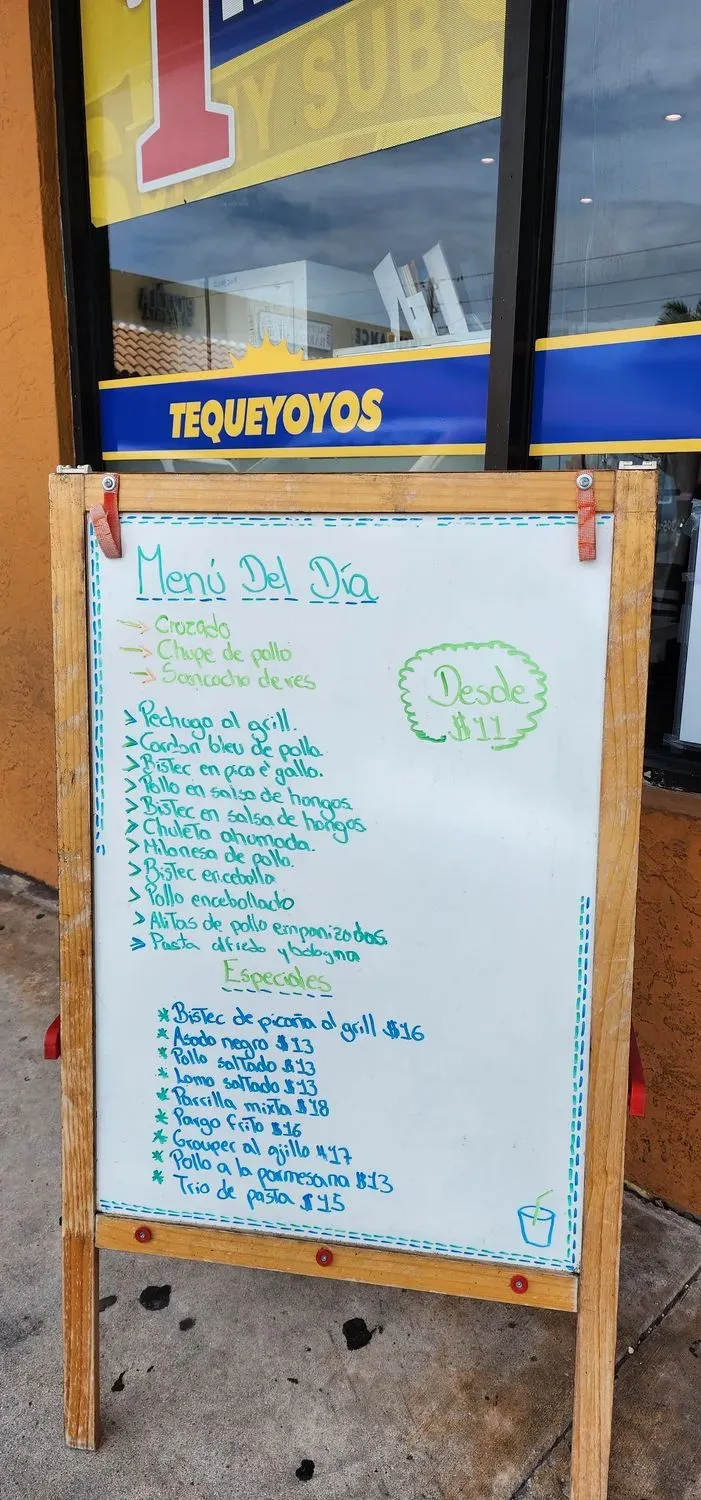 SUBS
TEQUEYOYOS
Menú Del Día
Cruzado
Chupe de pollo
Sancocho de res
Desde
$11
Pechuga al grill.
Cordon bleu de pollo.
Bistec en pico e' gallo.
Pollo en salsa de hongos.
Bistec en salsa de hongos.
Chuleta ahumada.
Milanesa de pollo.
Bistec encebolla
Pollo encebollado
Alitas de pollo empanizadas.
Pasta alfredo y bologna
Especiales
Bistec de picaña al grill $16
Asado negro $13
Pollo saltado $13
Lomo saltado $13
Parrilla mixta $18
Pargo frito $16
Grouper al ajillo $17
Pollo a la parmesana $13
Trio de pasta $15